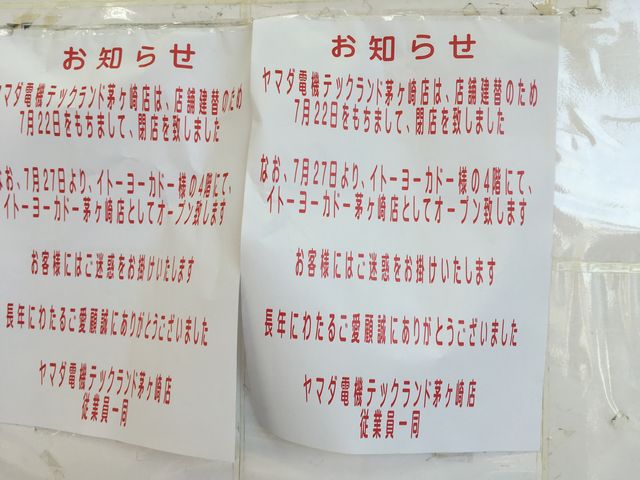 お知らせ
マダ電機テックランド茅ヶ崎店は、店舗建替のため
7月22日をもちまして、閉店を致しました
なお、7月27日より、イトーヨーカドー様の4階にて、
イトーヨーカドー茅ヶ崎店としてオープン致します
お客様にはご迷惑をお掛けいたします
長年にわたるご愛顧誠にありがとうございました
ヤマダ電機テックランド茅ヶ崎店
従業員一同
お知らせ
ヤマダ電機テックランド茅ヶ崎店は、店舗建替のため
7月22日をもちまして、閉店を致しました
なお、7月27日より、イトーヨーカドー様の4階にて、
イトーヨーカドー茅ヶ崎店としてオープン致します
お客様にはご迷惑をお掛けいたします
長年にわたるご愛顧誠にありがとうございました
ヤマダ電機テックランド茅ヶ崎店
従業員一同